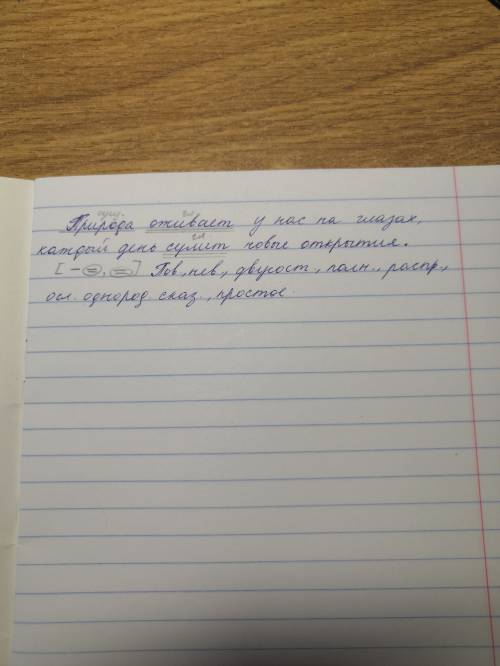 сущ. гл
Природа оживает у нас на глазах,
гл
каждый день сулит новые открытия.
[– =, =] Пов, нев., двусост., полн., распр.,
осл. однород. сказ., простое.